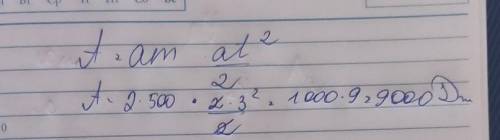 A = am al²
2
A = 2 · 500 · 2 · 3² = 1000 · 9 = 9000 Dm
2